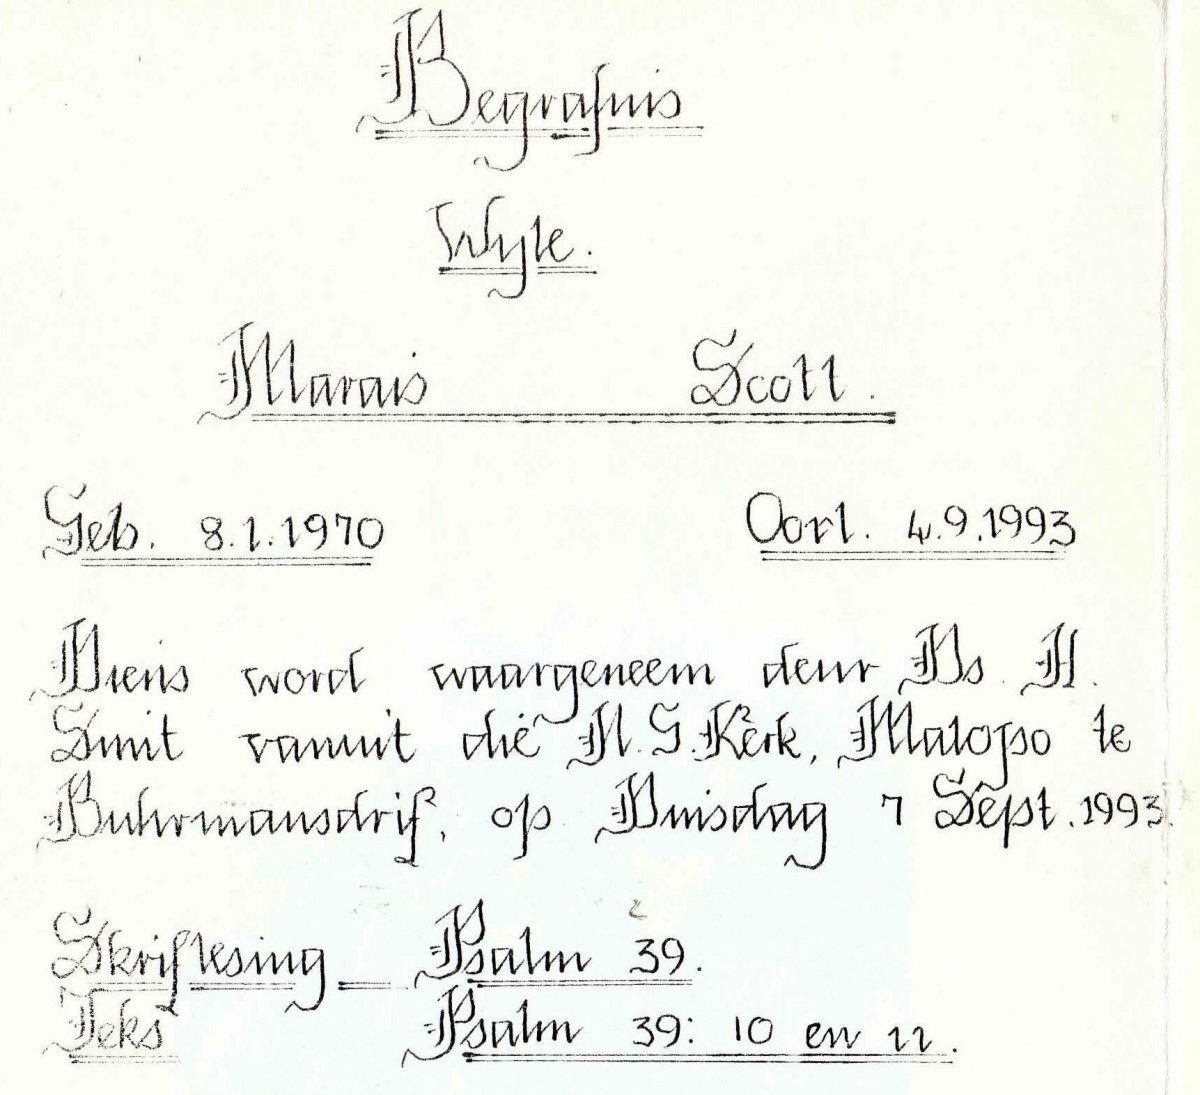 Begrafnis
Wyle.
Marais Scott.
Geb. 8.1.1970 Oorl. 4.9.1993
Diens word waargeneem deur Ds. H.
Smit vanuit die N.G. Kerk, Matopo te
Buhrmansdrif, op Dinsdag 7 Sept. 1993.
Skriflesing — Psalm 39.
Teks Psalm 39: 10 en 11.